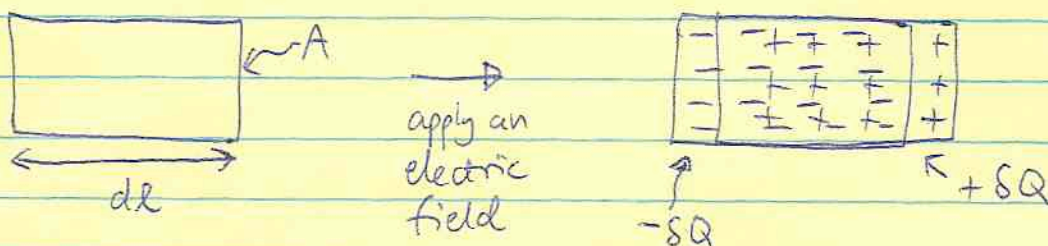 A
dl
apply an
electric
field
- - + - + - + +
- - + - + - + +
- - + - + - + - +
-δQ
+δQ